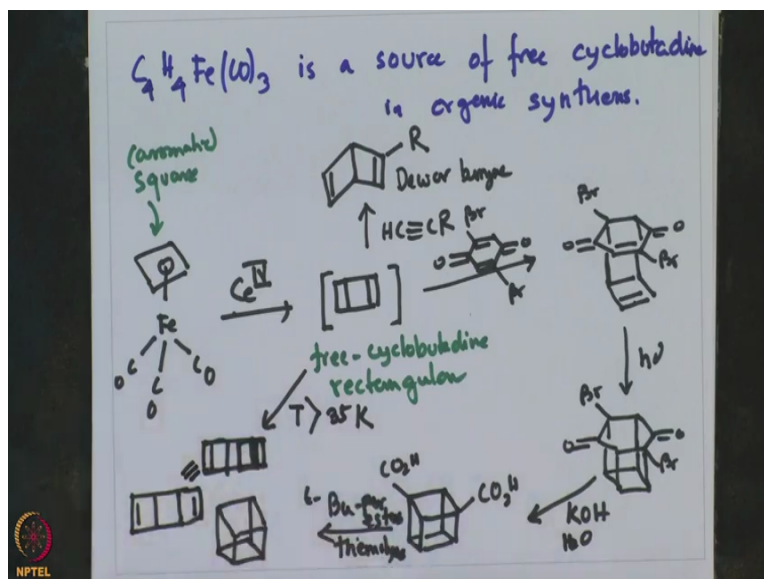 C4H4Fe(CO)3 is a source of free cyclobutadine
in orgenic synthens.
(arromatic)
square
R
Dewar benzyne
HC≡CR
Br
O
O
Br
Br
O
O
Br
Fe
C
O
C
O
C
O
Ce IV
[ ]
free-cyclobutadine
rectangular
T > 35 K
hν
Br
O
O
Br
KOH
H2O
CO2H
CO2H
t-Bu-per
ester
thermolysis
NPTEL